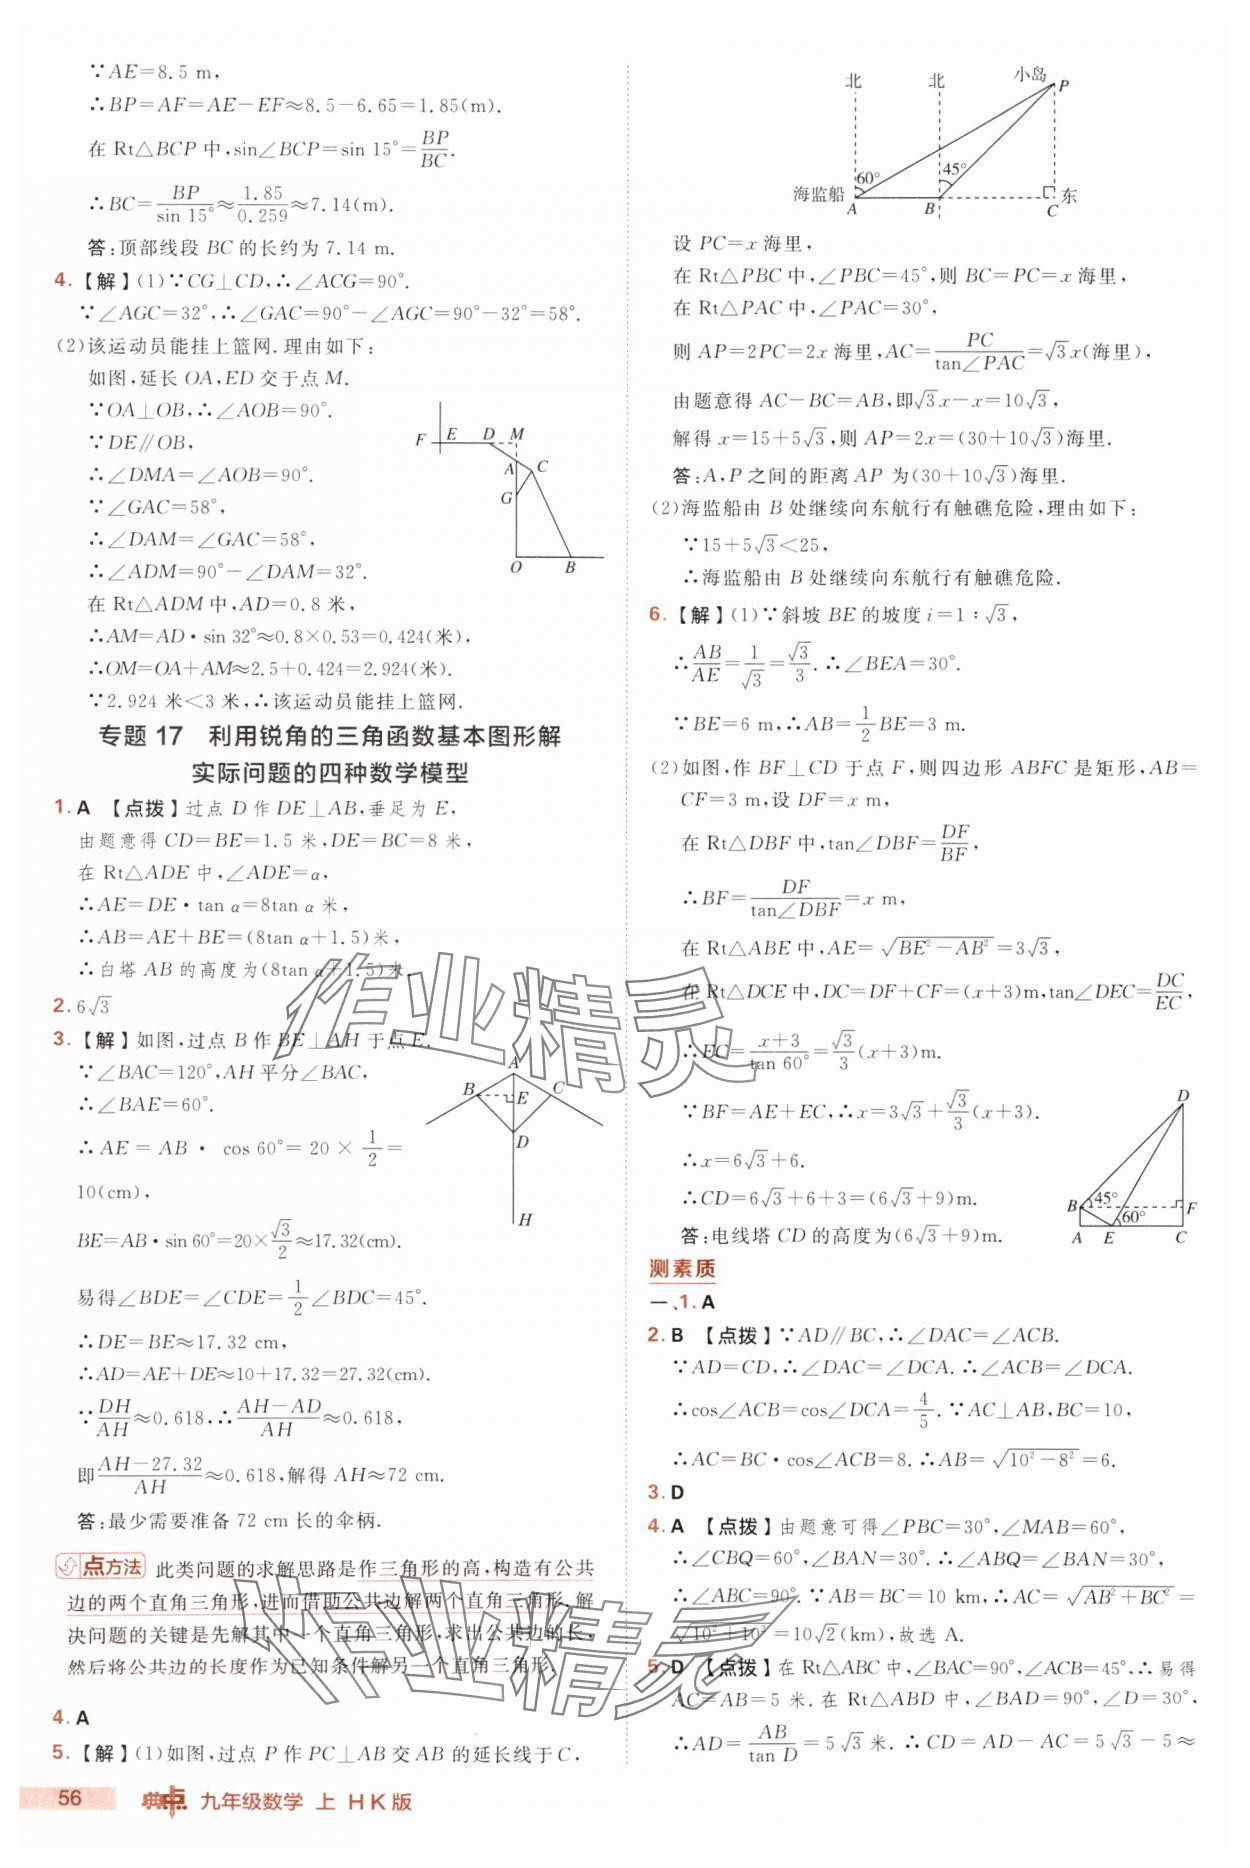 ∵AE=8.5 m,
∴BP=AF=AE-EF≈8.5-6.65=1.85(m).
在 Rt△BCP 中,sin∠BCP=sin 15°=BP/BC.
∴BC=BP/sin 15°≈1.85/0.259≈7.14(m).
答:顶部线段 BC 的长约为 7.14 m.
4.【解】(1)∵CG⊥CD,∴∠ACG=90°.
∵∠AGC=32°,∴∠GAC=90°-∠AGC=90°-32°=58°.
(2)该运动员能挂上篮网.理由如下:
如图,延长 OA,ED 交于点 M.
∵OA⊥OB,∴∠AOB=90°.
∵DE∥OB,
∴∠DMA=∠AOB=90°.
∵∠GAC=58°,
∴∠DAM=∠GAC=58°,
∴∠ADM=90°-∠DAM=32°.
在 Rt△ADM 中,AD=0.8 米,
∴AM=AD·sin 32°≈0.8×0.53=0.424(米),
∴OM=OA+AM≈2.5+0.424=2.924(米).
∵2.924 米<3 米,∴该运动员能挂上篮网.
F E D M
A C
G
O B
专题 17 利用锐角的三角函数基本图形解
实际问题的四种数学模型
1. A 【点拨】过点 D 作 DE⊥AB,垂足为 E,
由题意得 CD=BE=1.5 米,DE=BC=8 米,
在 Rt△ADE 中,∠ADE=α,
∴AE=DE·tan α=8tan α 米,
∴AB=AE+BE=(8tan α+1.5)米,
∴白塔 AB 的高度为(8tan α+1.5)米.
2. 6√3
3.【解】如图,过点 B 作 BE⊥AH 于点 E.
∵∠BAC=120°,AH 平分∠BAC,
∴∠BAE=60°.
∴AE = AB · cos 60° = 20 × 1/2 =
10(cm),
BE=AB·sin 60°=20×√3/2≈17.32(cm).
易得∠BDE=∠CDE=1/2∠BDC=45°.
∴DE=BE≈17.32 cm,
∴AD=AE+DE≈10+17.32=27.32(cm).
∵DH/AH≈0.618,∴(AH-AD)/AH≈0.618,
即(AH-27.32)/AH≈0.618,解得 AH≈72 cm.
答:最少需要准备 72 cm 长的伞柄.
A
B E C
D
H
点方法 此类问题的求解思路是作三角形的高,构造有公共
边的两个直角三角形,进而借助公共边解两个直角三角形.解
决问题的关键是先解其中一个直角三角形,求出公共边的长,
然后将公共边的长度作为已知条件解另一个直角三角形.
4. A
5.【解】(1)如图,过点 P 作 PC⊥AB 交 AB 的延长线于 C,
北 北 小岛 P
60° 45°
海监船 东
A B C
设 PC=x 海里,
在 Rt△PBC 中,∠PBC=45°,则 BC=PC=x 海里,
在 Rt△PAC 中,∠PAC=30°,
则 AP=2PC=2x 海里,AC=PC/tan∠PAC=√3x(海里),
由题意得 AC-BC=AB,即√3x-x=10√3,
解得 x=15+5√3,则 AP=2x=(30+10√3)海里.
答:A,P 之间的距离 AP 为(30+10√3)海里.
(2)海监船由 B 处继续向东航行有触礁危险,理由如下:
∵15+5√3<25,
∴海监船由 B 处继续向东航行有触礁危险.
6.【解】(1)∵斜坡 BE 的坡度 i=1∶√3,
∴AB/AE=1/√3=√3/3.∴∠BEA=30°.
∵BE=6 m,∴AB=1/2BE=3 m.
(2)如图,作 BF⊥CD 于点 F,则四边形 ABFC 是矩形,AB=
CF=3 m,设 DF=x m,
在 Rt△DBF 中,tan∠DBF=DF/BF,
∴BF=DF/tan∠DBF=x m,
在 Rt△ABE 中,AE=√(BE²-AB²)=3√3,
在 Rt△DCE 中,DC=DF+CF=(x+3)m,tan∠DEC=DC/EC,
∴EC=(x+3)/tan 60°=√3/3(x+3)m.
∵BF=AE+EC,∴x=3√3+√3/3(x+3).
∴x=6√3+6.
∴CD=6√3+6+3=(6√3+9)m.
答:电线塔 CD 的高度为(6√3+9)m.
D
B 45° F
60°
A E C
测素质
一、1. A
2. B 【点拨】∵AD∥BC,∴∠DAC=∠ACB.
∵AD=CD,∴∠DAC=∠DCA.∴∠ACB=∠DCA.
∴cos∠ACB=cos∠DCA=4/5.∵AC⊥AB,BC=10,
∴AC=BC·cos∠ACB=8.∴AB=√(10²-8²)=6.
3. D
4. A 【点拨】由题意可得∠PBC=30°,∠MAB=60°,
∴∠CBQ=60°,∠BAN=30°.∴∠ABQ=∠BAN=30°,
∴∠ABC=90°.∵AB=BC=10 km,∴AC=√(AB²+BC²)=
√(10²+10²)=10√2(km),故选 A.
5. D 【点拨】在 Rt△ABC 中,∠BAC=90°,∠ACB=45°,∴易得
AC=AB=5 米.在 Rt△ABD 中,∠BAD=90°,∠D=30°,
∴AD=AB/tan D=5√3 米.∴CD=AD-AC=5√3-5≈
56 典中点 九年级数学 上 HK版
作业精灵
作业精灵